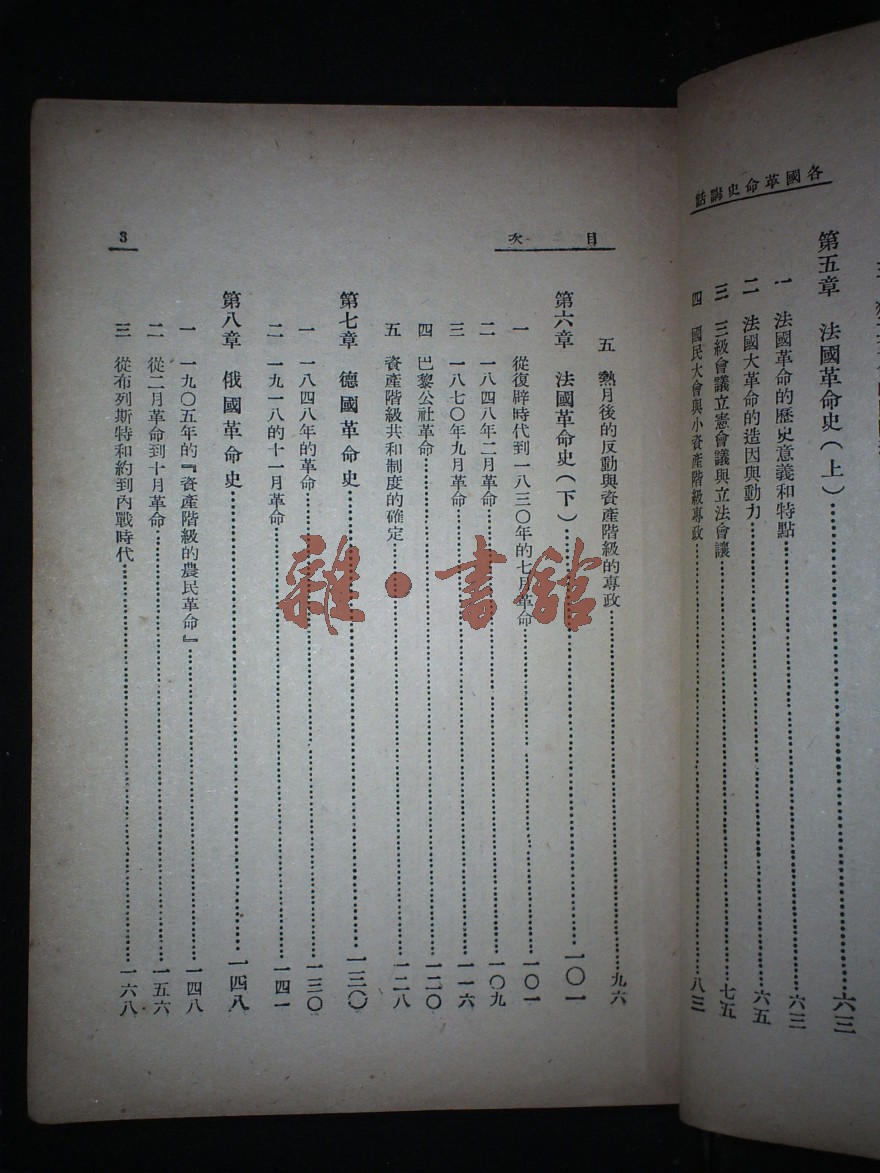 各國革命史講話
第五章　法國革命史（上）……………六三
一　法國革命的歷史意義和特點……………六三
二　法國大革命的造因與動力……………六五
三　三級會議立憲會議與立法會議……………七五
四　國民大會與小資產階級專政……………八三
目次
3
五　熱月後的反動與資產階級的專政……………九六
第六章　法國革命史（下）……………一〇一
一　從復辟時代到一八三〇年的七月革命……………一〇一
二　一八四八年二月革命……………一〇九
三　一八七〇年九月革命……………一一六
四　巴黎公社革命……………一二〇
五　資產階級共和制度的確定……………一二八
第七章　德國革命史……………一三〇
一　一八四八年的革命……………一三〇
二　一九一八的十一月革命……………一四一
第八章　俄國革命史……………一四八
一　一九〇五年的『資產階級的農民革命』……………一四八
二　從二月革命到十月革命……………一五六
三　從布列斯特和約到內戰時代……………一六八
雜·書館